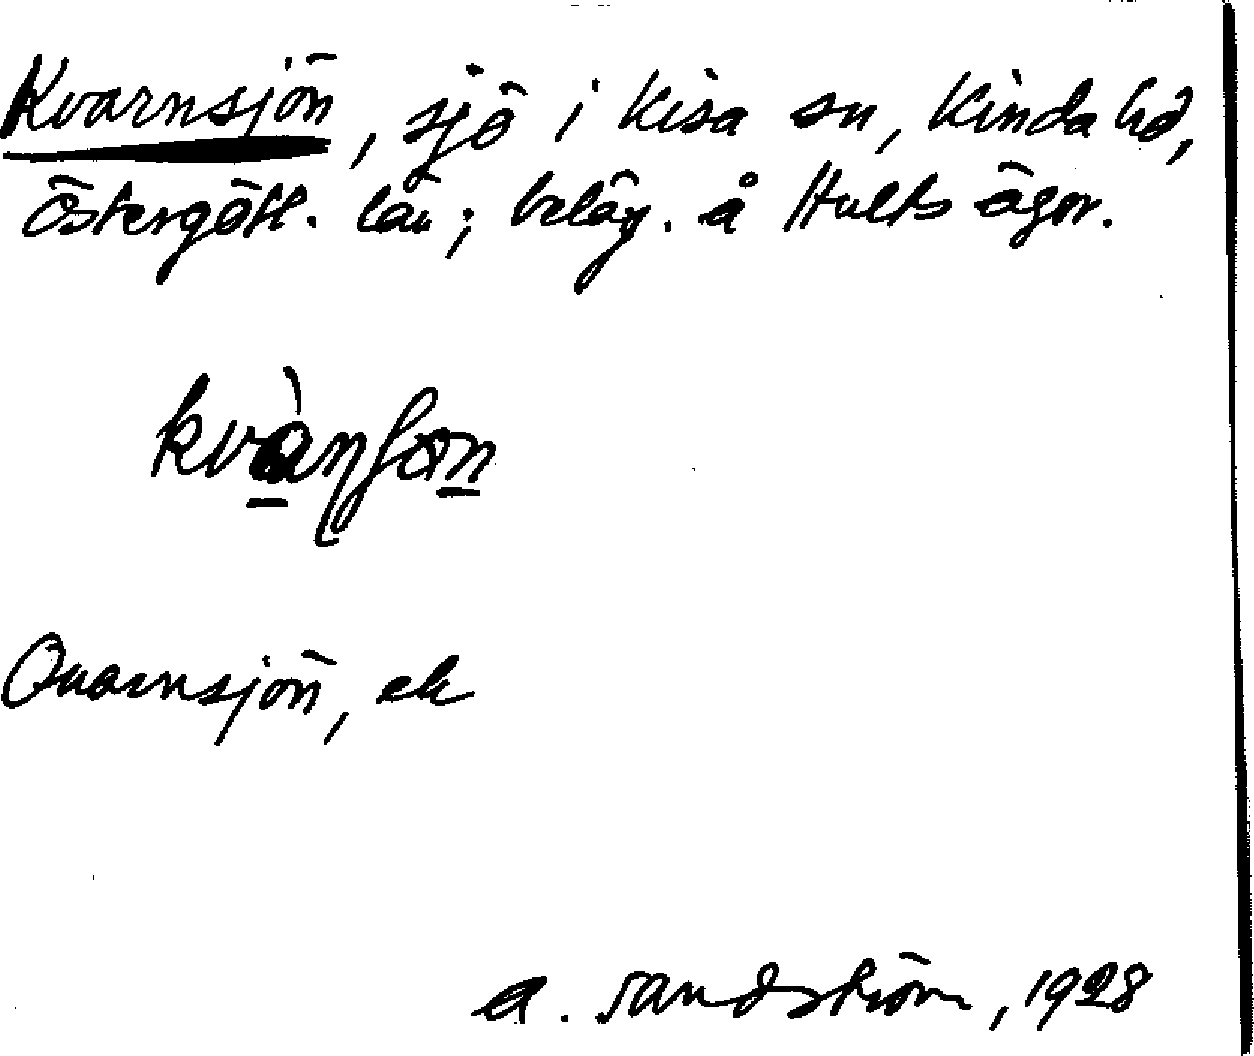 Kvarnsjön, sjö i Kisa sn, Kinda hd,
Östergötl. län; beläg. å Hults ägor.
Qvarnsjön, ek
A. Sandström, 1928